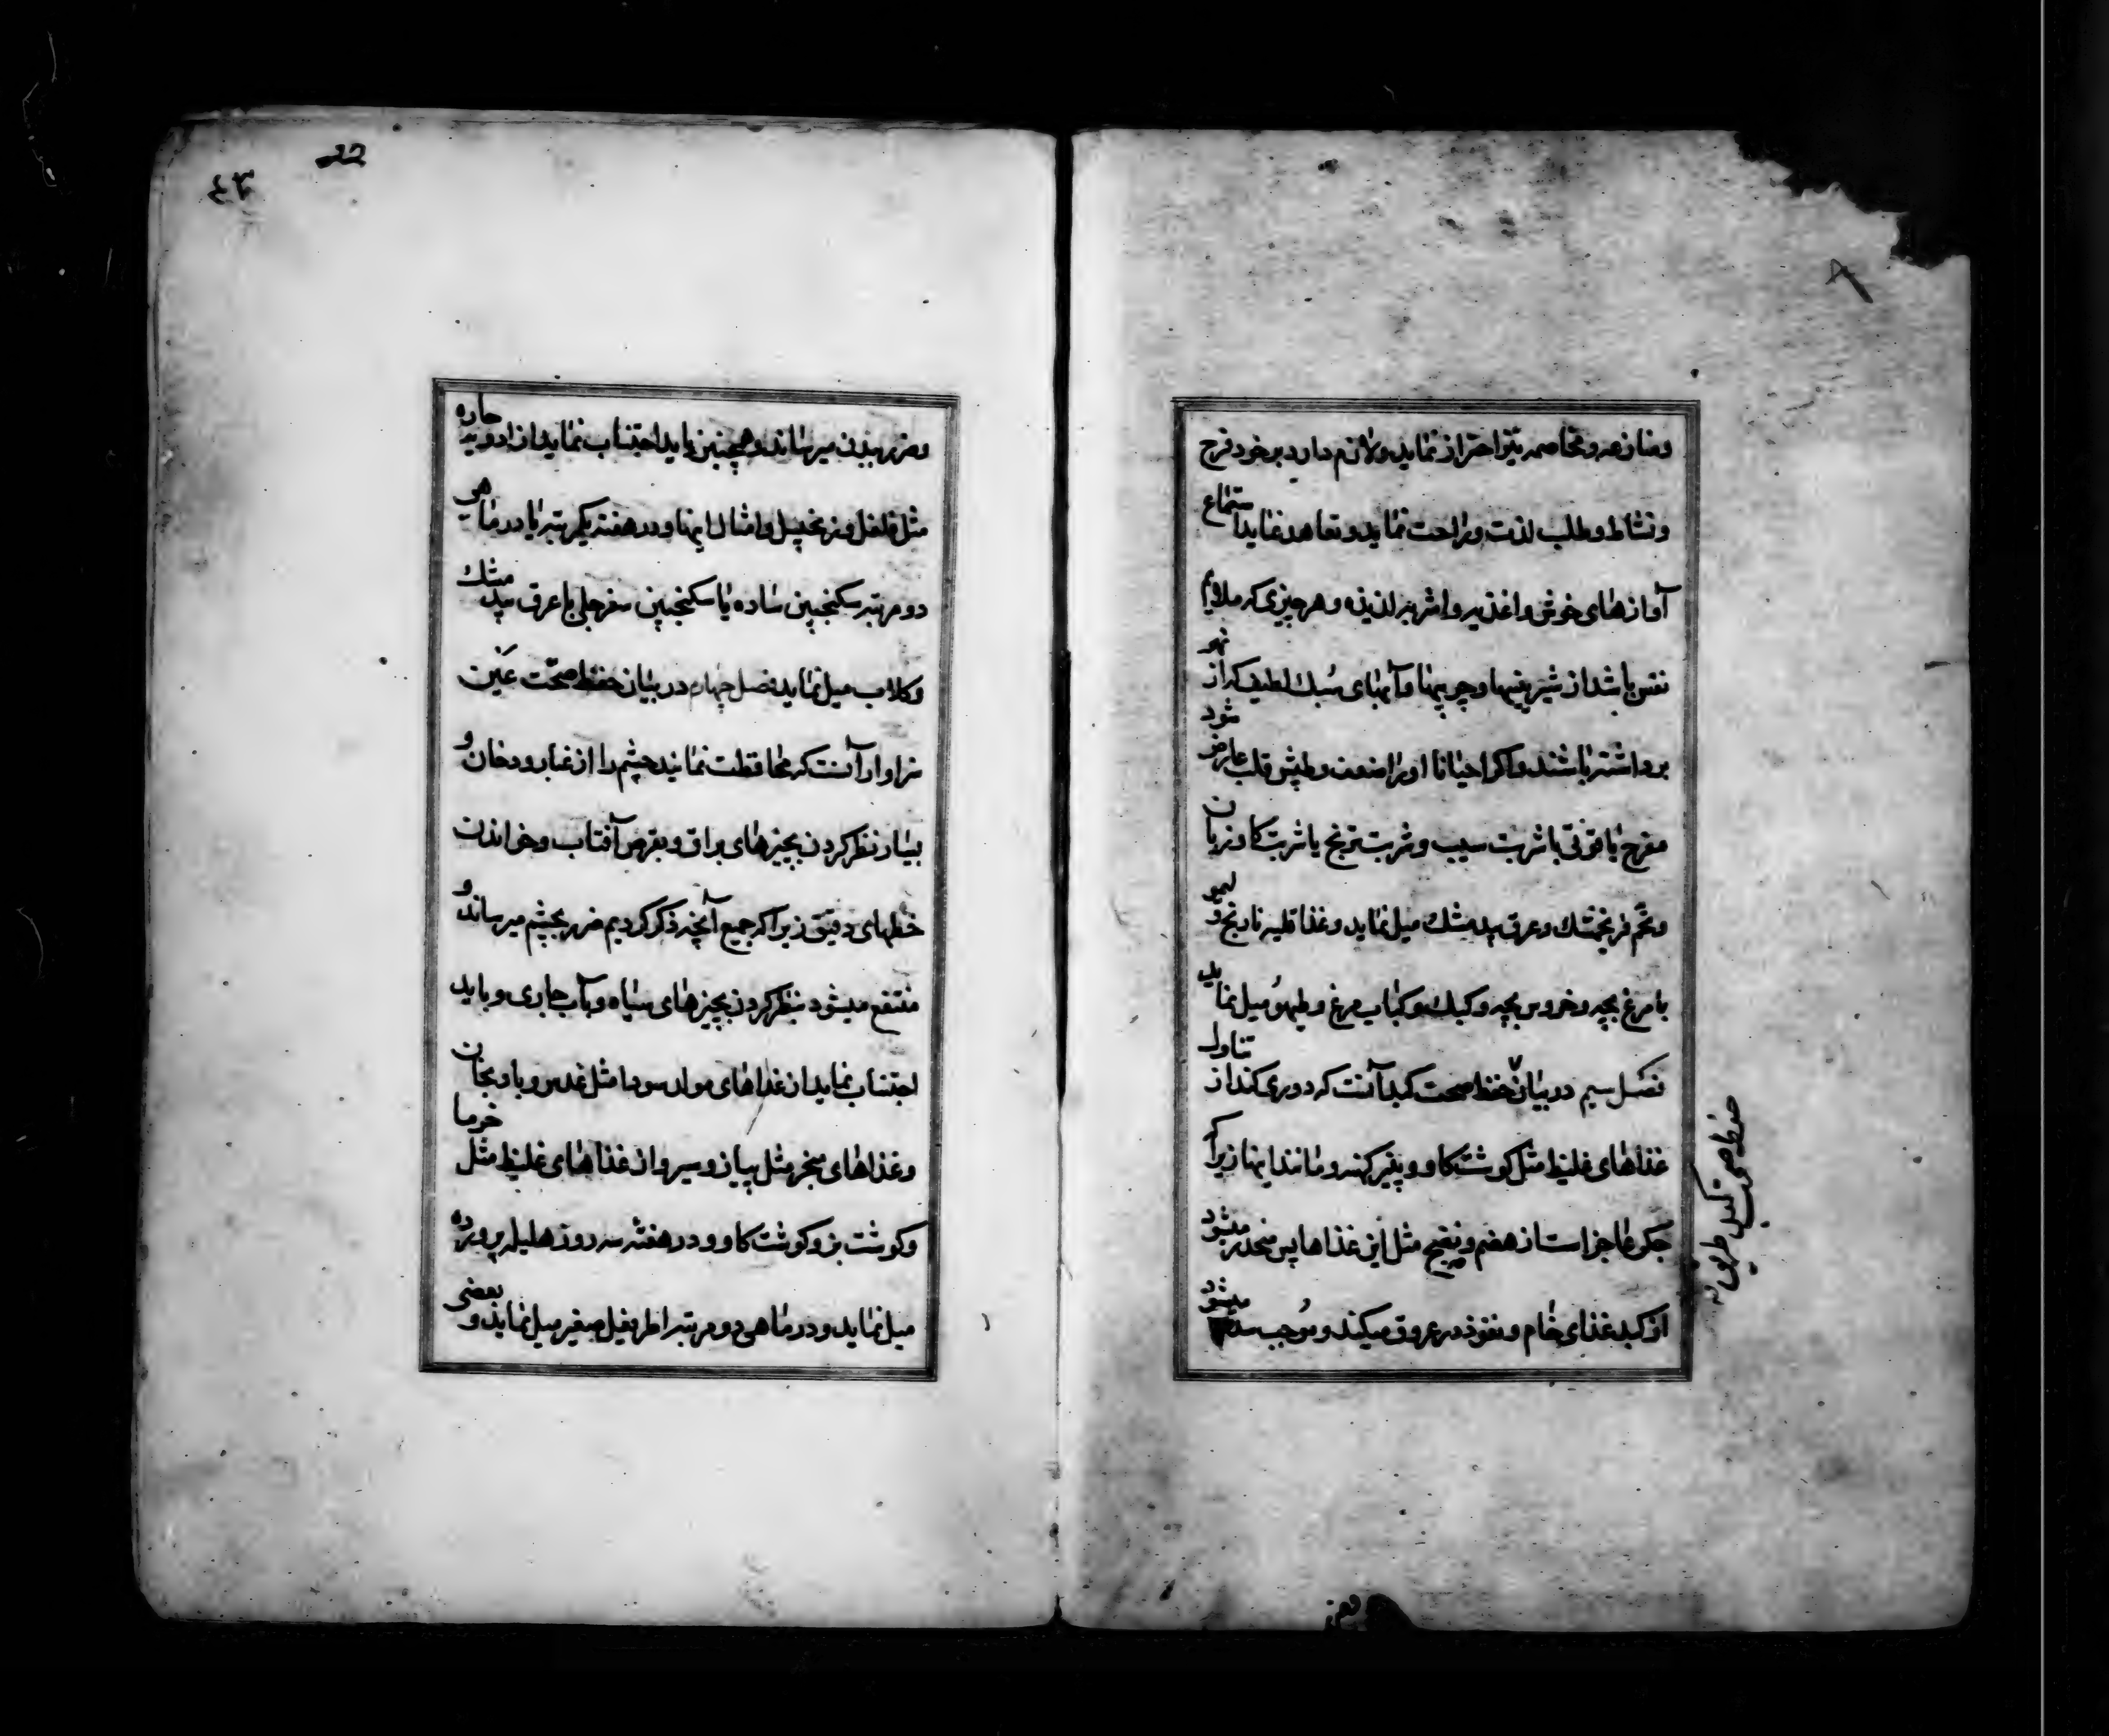 ومنازعه و مخاصمه نیز احتراز نماید و لازم دارد بر خود فرح
و نشاط و طلب لذت و راحت نماید و تعاهد نماید استماع
آوازهای خوش و اغذیه و اشربه لذیذه و هر چیزی که ملایم
نفس باشد از شیرینیها و چربیها و آبهای سبک لطیف که از نهر
برداشته باشند و اگر احیانا او را ضعف و طپش قلب عارض شود
مفرح یاقوتی با شربت سیب و شربت ترنج یا شربت کاوزبان
و تخم فرنجمشک و عرق بیدمشک میل نماید و غذا قلیه نارنج و لیمو
با مرغ بچه و خروس بچه و کبک و کباب مرغ و طیهو میل نماید
فصل سیم در بیان حفظ صحت کبد آنست که دوری کند از تناول
غذاهای غلیظ مثل کوشت کاو و پنیر کهنه و مانند اینها زیرا که
جکر عاجز است از هضم و نضج مثل این غذاها پس منحدر میشود
از کبد غذای خام و نفوذ در عروق میکند و موجب سده میشود
حفظ صحت کبد
22
٤٣
و ضرر ببدن میرساند و همچنین باید اجتناب نماید از ادویه حاره
مثل فلفل و زنجبیل و امثال اینها و در هفته یکمرتبه یا در ماهی
دو مرتبه سکنجبین ساده یا سکنجبین سفرجلی با عرق بیدمشک
و کلاب میل نماید فصل چهارم در بیان حفظ صحّت عین
سزاوار آنست که محافظت نمایند چشم را از غبار و دخان و
بسیار نظر کردن بچیزهای براق و بقرص آفتاب و خواندن
خطهای دقیق زیرا که جمیع آنچه ذکر کردیم ضرر بچشم میرساند و
منتفع میشود بنظر کردن بچیزهای سیاه و بآب جاری و باید
اجتناب نماید از غذاهای مولد سودا مثل عدس و بادنجان
و غذاهای مبخر مثل پیاز و سیر و از غذاهای غلیظ مثل خرما
و کوشت بز و کوشت کاو و در هفته سه روز هلیله پرورده
میل نماید و در ماهی دو مرتبه اطریفل صغیر میل نماید و بعضی